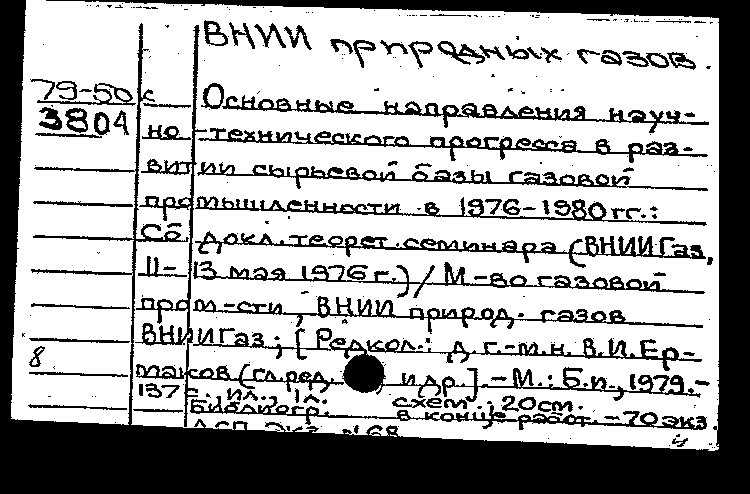 ВНИИ природных газов.
79-50к Основные направления науч-
3804 но-технического прогресса в раз-
витии сырьевой базы газовой
промышленности в 1976-1980 гг.:
Сб. докл. теорет. семинара (ВНИИГаз,
11-13 мая 1976 г.) / М-во газовой
пром-сти, ВНИИ природ. газов
ВНИИГаз; [Редкол.: д. г.-м.н. В.И. Ер-
8 маков (гл. ред. и др.]. - М.: Б.и., 1979. -
137 с., ил., 1 л. схем.; 20 см.
Библиогр. в конце работ. - 70 экз.
ДСП Экз. №68